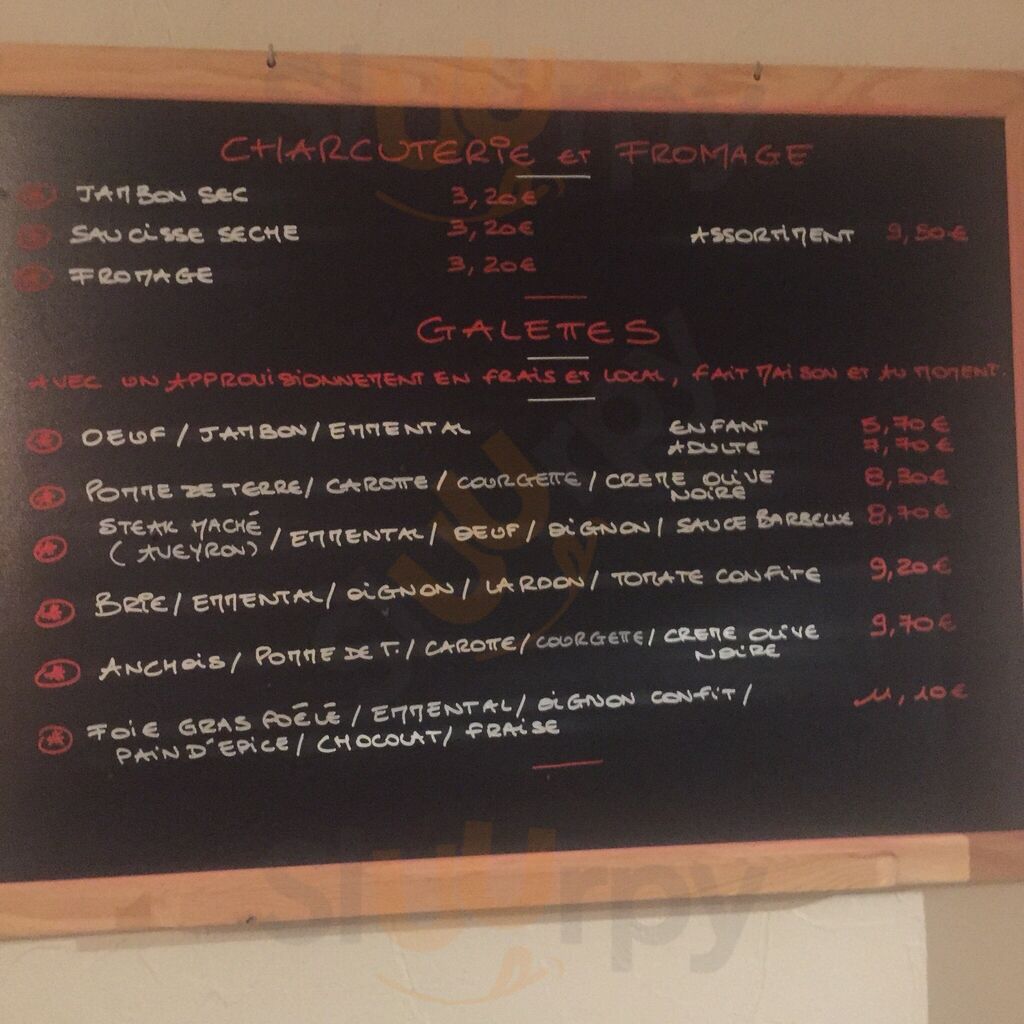 CHARCUTERIE ET FROMAGE
JAMBON SEC 3,20€
SAUCISSE SECHE 3,20€ ASSORTIMENT 9,50€
FROMAGE 3,20€
GALETTES
AVEC UN APPROVISIONNEMENT EN FRAIS ET LOCAL, FAIT MAISON ET AU MOMENT.
OEUF / JAMBON / EMMENTAL ENFANT 5,70€
ADULTE 7,70€
POMME DE TERRE / CAROTTE / COURGETTE / CREME OLIVE 8,30€
NOIRE
STEAK HACHÉ
(AVEYRON) / EMMENTAL / OEUF / OIGNON / SAUCE BARBECUE 8,70€
BRIE / EMMENTAL / OIGNON / LARDON / TOMATE CONFITE 9,20€
ANCHOIS / POMME DE T. / CAROTTE / COURGETTE / CREME OLIVE 9,70€
NOIRE
FOIE GRAS POÊLÉ / EMMENTAL / OIGNON CONFIT / 11,10€
PAIN D'EPICE / CHOCOLAT / FRAISE
Sluurpy
Sluurpy
Sluurpy